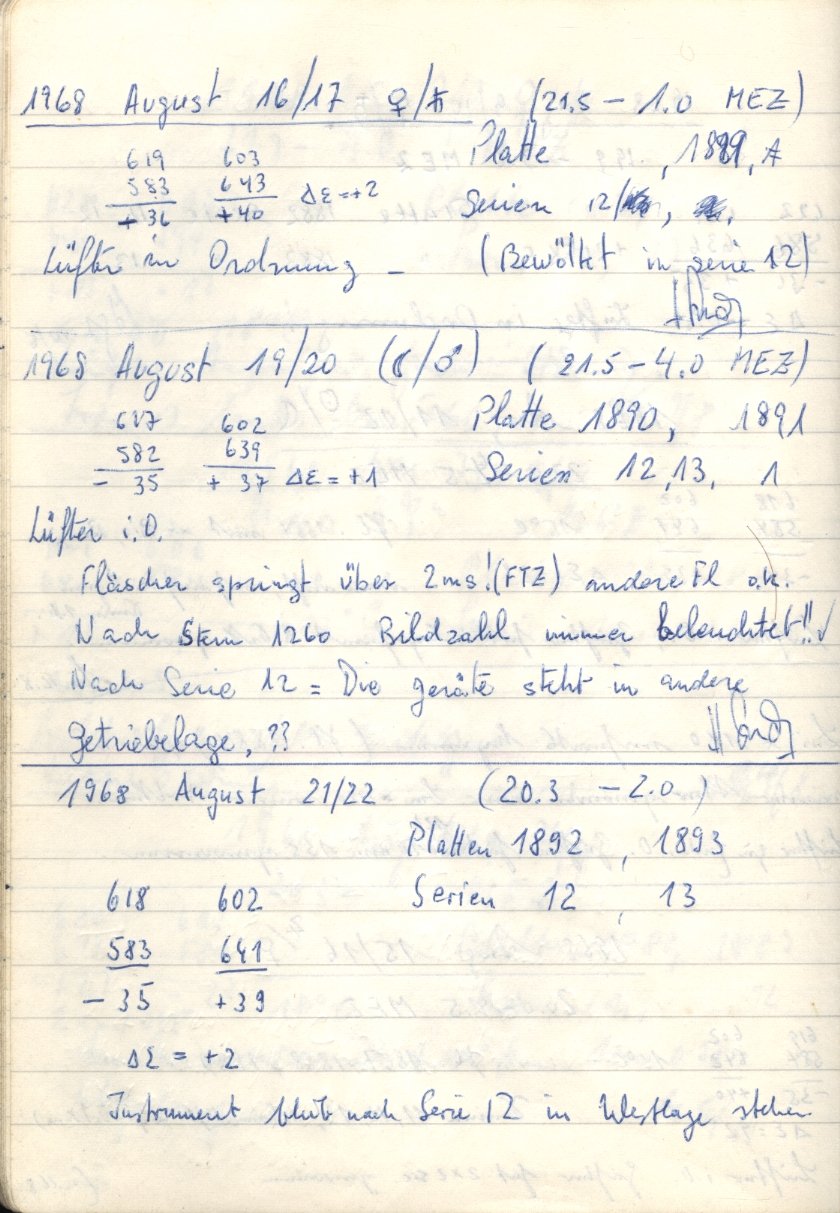 1968 August 16/17 ♀/♄ (21.5 – 1.0 MEZ)
619 603 Platte , 1889, A
583 643 Δε = +2 Serien 12/
+ 36 +40
Lüfter in Ordnung – (Bewölkt in Serie 12)
1968 August 19/20 (☾/♂) (21.5 – 4.0 MEZ)
617 602 Platte 1890, 1891
582 639
– 35 + 37 Δε = +1 Serien 12, 13, 1
Lüfter i.O.
Fläscher springt über 2ms! (FTZ) andere Fl o.k.
Nach Stern 1260 Bildzahl immer beleuchtet!! ✓
Nach Serie 12 = Die geräte steht in andere
getriebelage, ??
1968 August 21/22 (20.3 – 2.0)
Platten 1892 , 1893
618 602 Serien 12 , 13
583 641
– 35 +39
Δε = +2
Instrument blieb nach Serie 12 in Westlage stehen